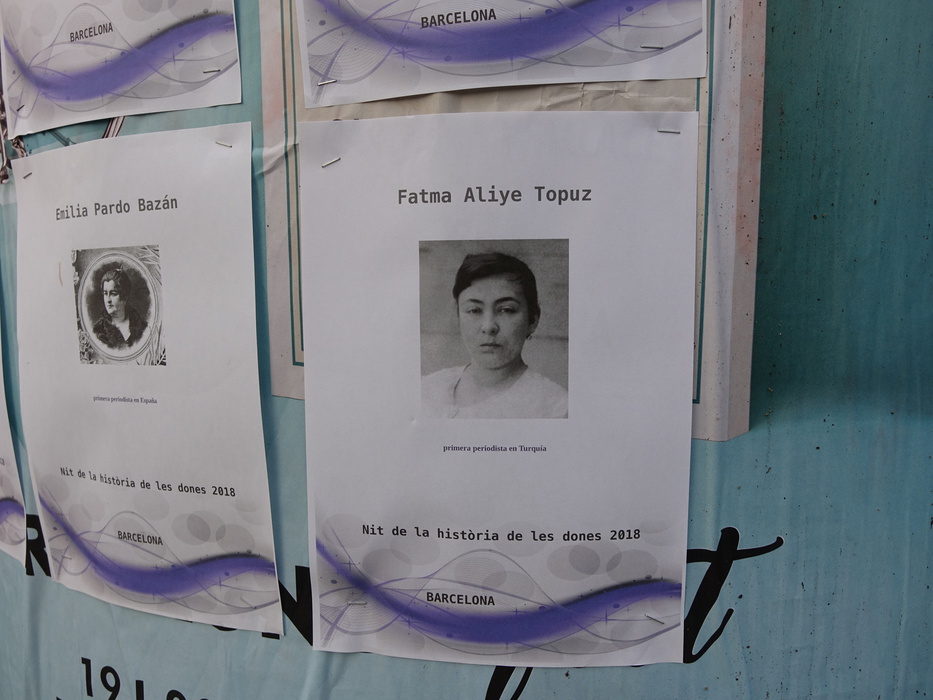 BARCELONA
BARCELONA
Emilia Pardo Bazán
primera periodista en España
Nit de la història de les dones 2018
BARCELONA
Fatma Aliye Topuz
primera periodista en Turquía
Nit de la història de les dones 2018
BARCELONA